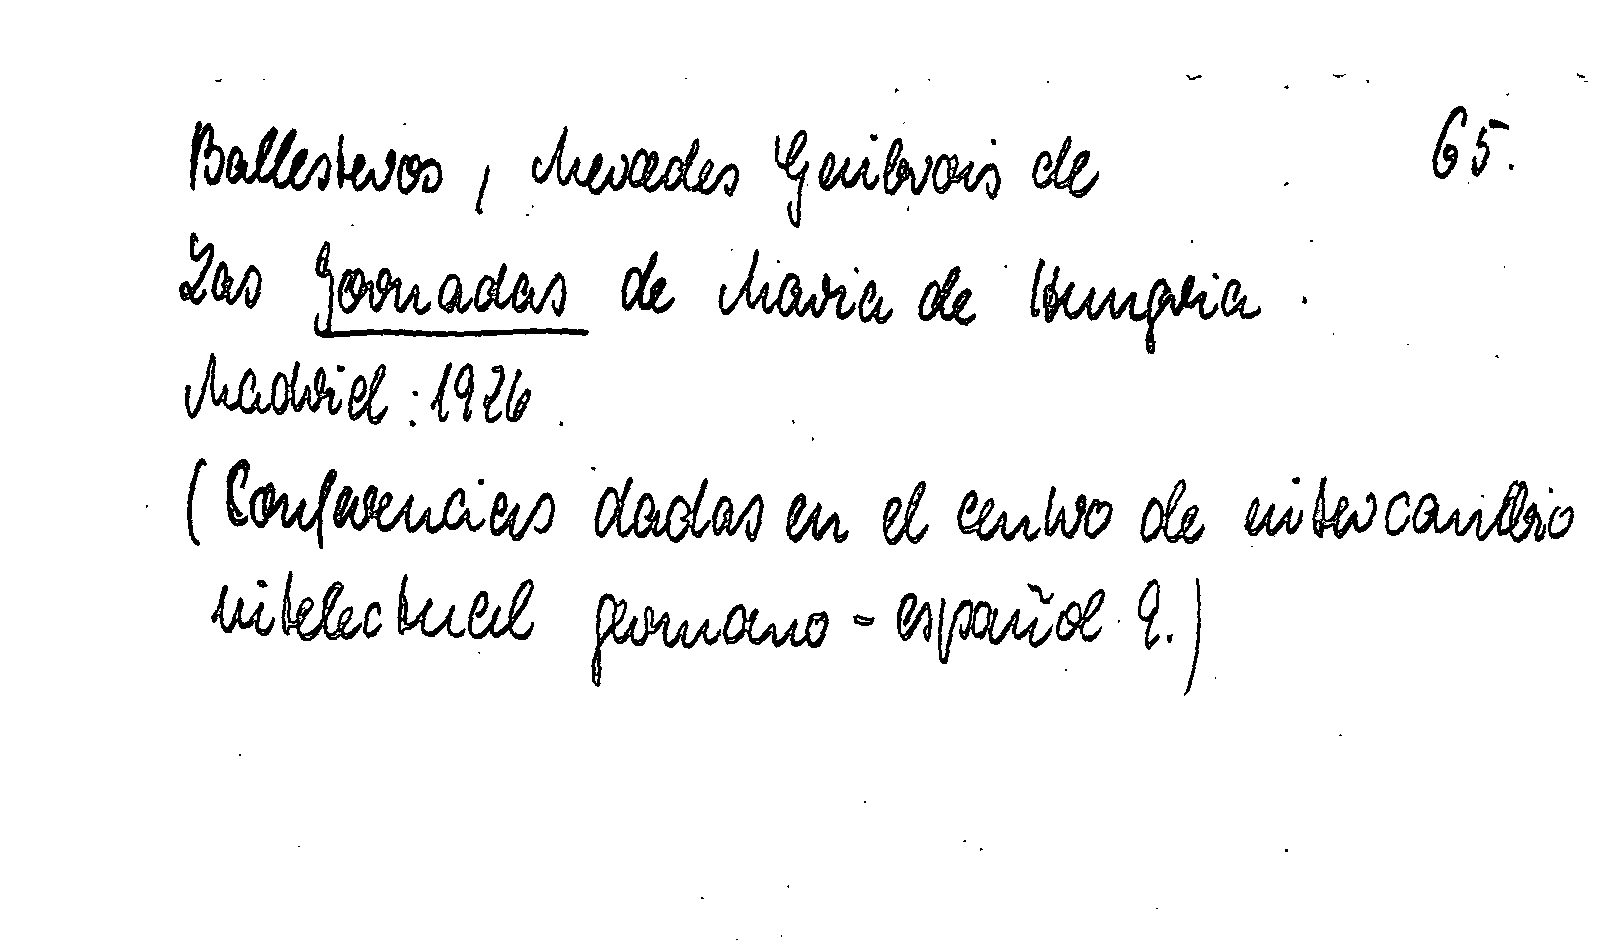 Ballesteros, Mercedes Gaibrois de 65.
Las Jornadas de Maria de Hungria.
Madrid: 1926.
(Conferencias dadas en el centro de intercambio
intelectual germano-español 9.)